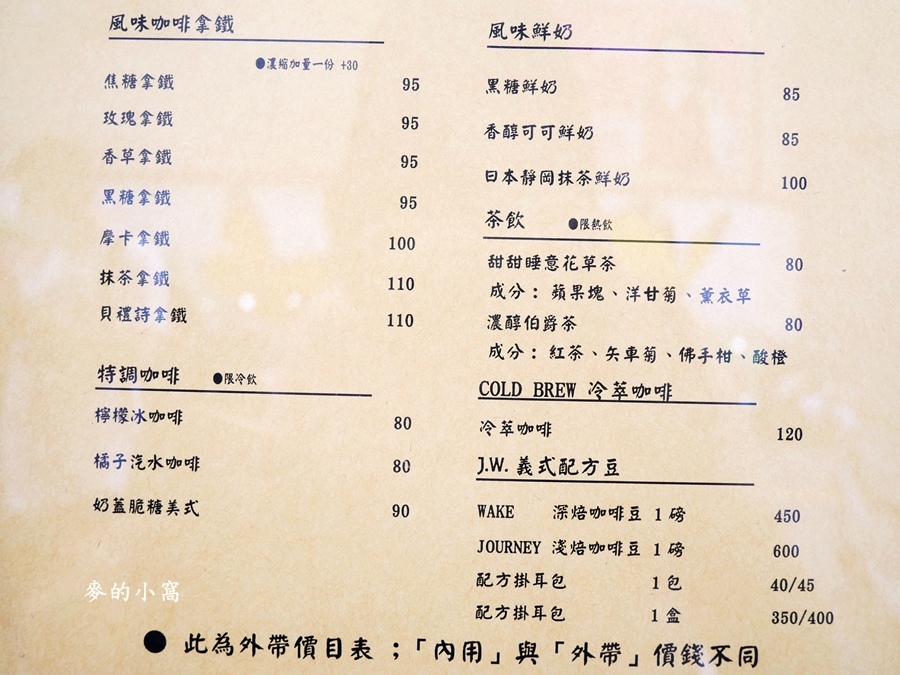 風味咖啡拿鐵
●濃縮加量一份 +30
焦糖拿鐵 95
玫瑰拿鐵 95
香草拿鐵 95
黑糖拿鐵 95
摩卡拿鐵 100
抹茶拿鐵 110
貝禮詩拿鐵 110
特調咖啡 ●限冷飲
檸檬冰咖啡 80
橘子汽水咖啡 80
奶蓋脆糖美式 90
風味鮮奶
黑糖鮮奶 85
香醇可可鮮奶 85
日本靜岡抹茶鮮奶 100
茶飲 ●限熱飲
甜甜睡意花草茶 80
成分：蘋果塊、洋甘菊、薰衣草
濃醇伯爵茶 80
成分：紅茶、矢車菊、佛手柑、酸橙
COLD BREW 冷萃咖啡
冷萃咖啡 120
J.W. 義式配方豆
WAKE 深焙咖啡豆 1 磅 450
JOURNEY 淺焙咖啡豆 1 磅 600
配方掛耳包 1 包 40/45
配方掛耳包 1 盒 350/400
麥的小窩
● 此為外帶價目表；「內用」與「外帶」價錢不同